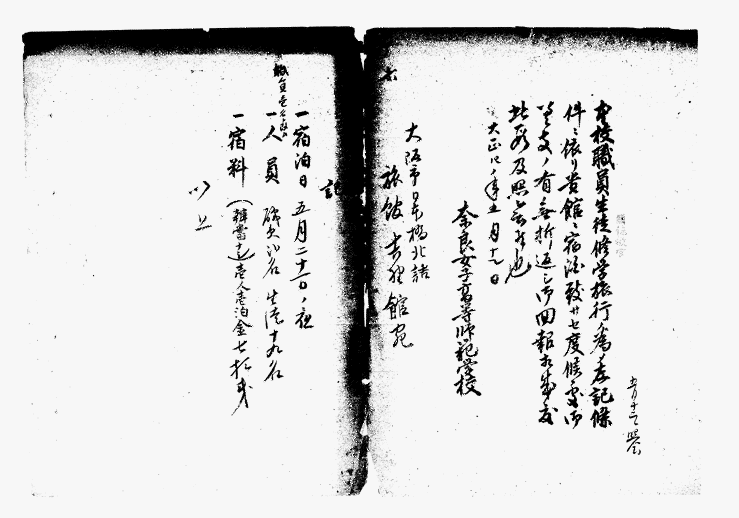 本校職員生徒修学旅行ノ為メ左記條
件ニ依リ貴館ニ宿泊致サセ度候条御
差支ノ有無折返シ御回報相成度
此段及照会候也
大正八年五月十九日
奈良女子高等師範学校
大阪市日本橋北詰
旅館 吉野館宛
記
一宿泊日 五月二十一日ノ夜
一人員 職員 名 生徒十九名
一宿料 (辨當共)壱人壱泊金七拾銭
以上